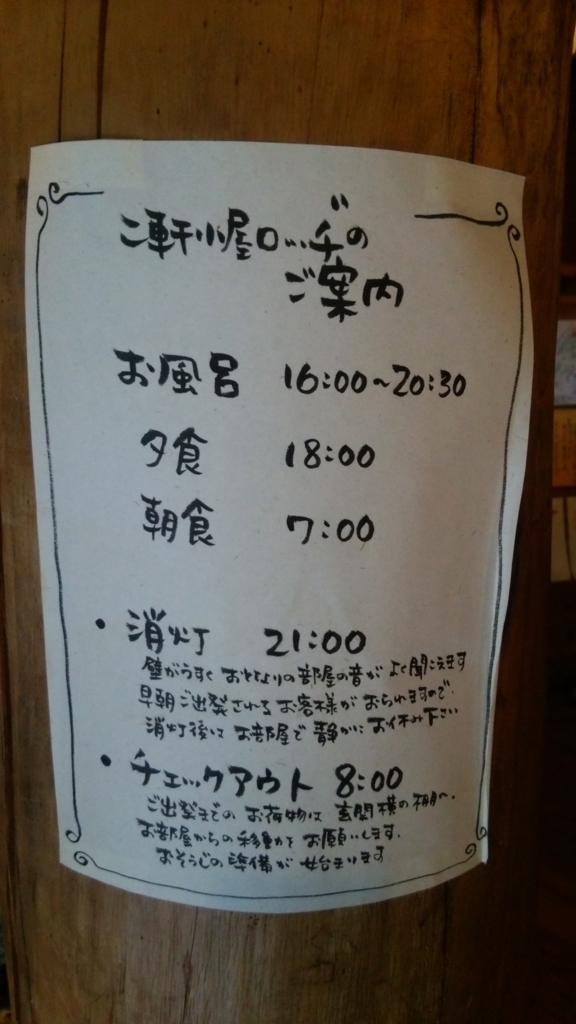 二軒小屋ロッヂの
ご案内
お風呂 16:00~20:30
夕食 18:00
朝食 7:00
・消灯 21:00
壁がうすく おとなりの部屋の音が よく聞こえます
早朝ご出発される お客様が おられますので、
消灯後は お部屋で 静かに お休み下さい
・チェックアウト 8:00
ご出発までの お荷物は 玄関横の 棚へ、
お部屋からの 移動を お願いします。
おそうじの 準備が 始まります